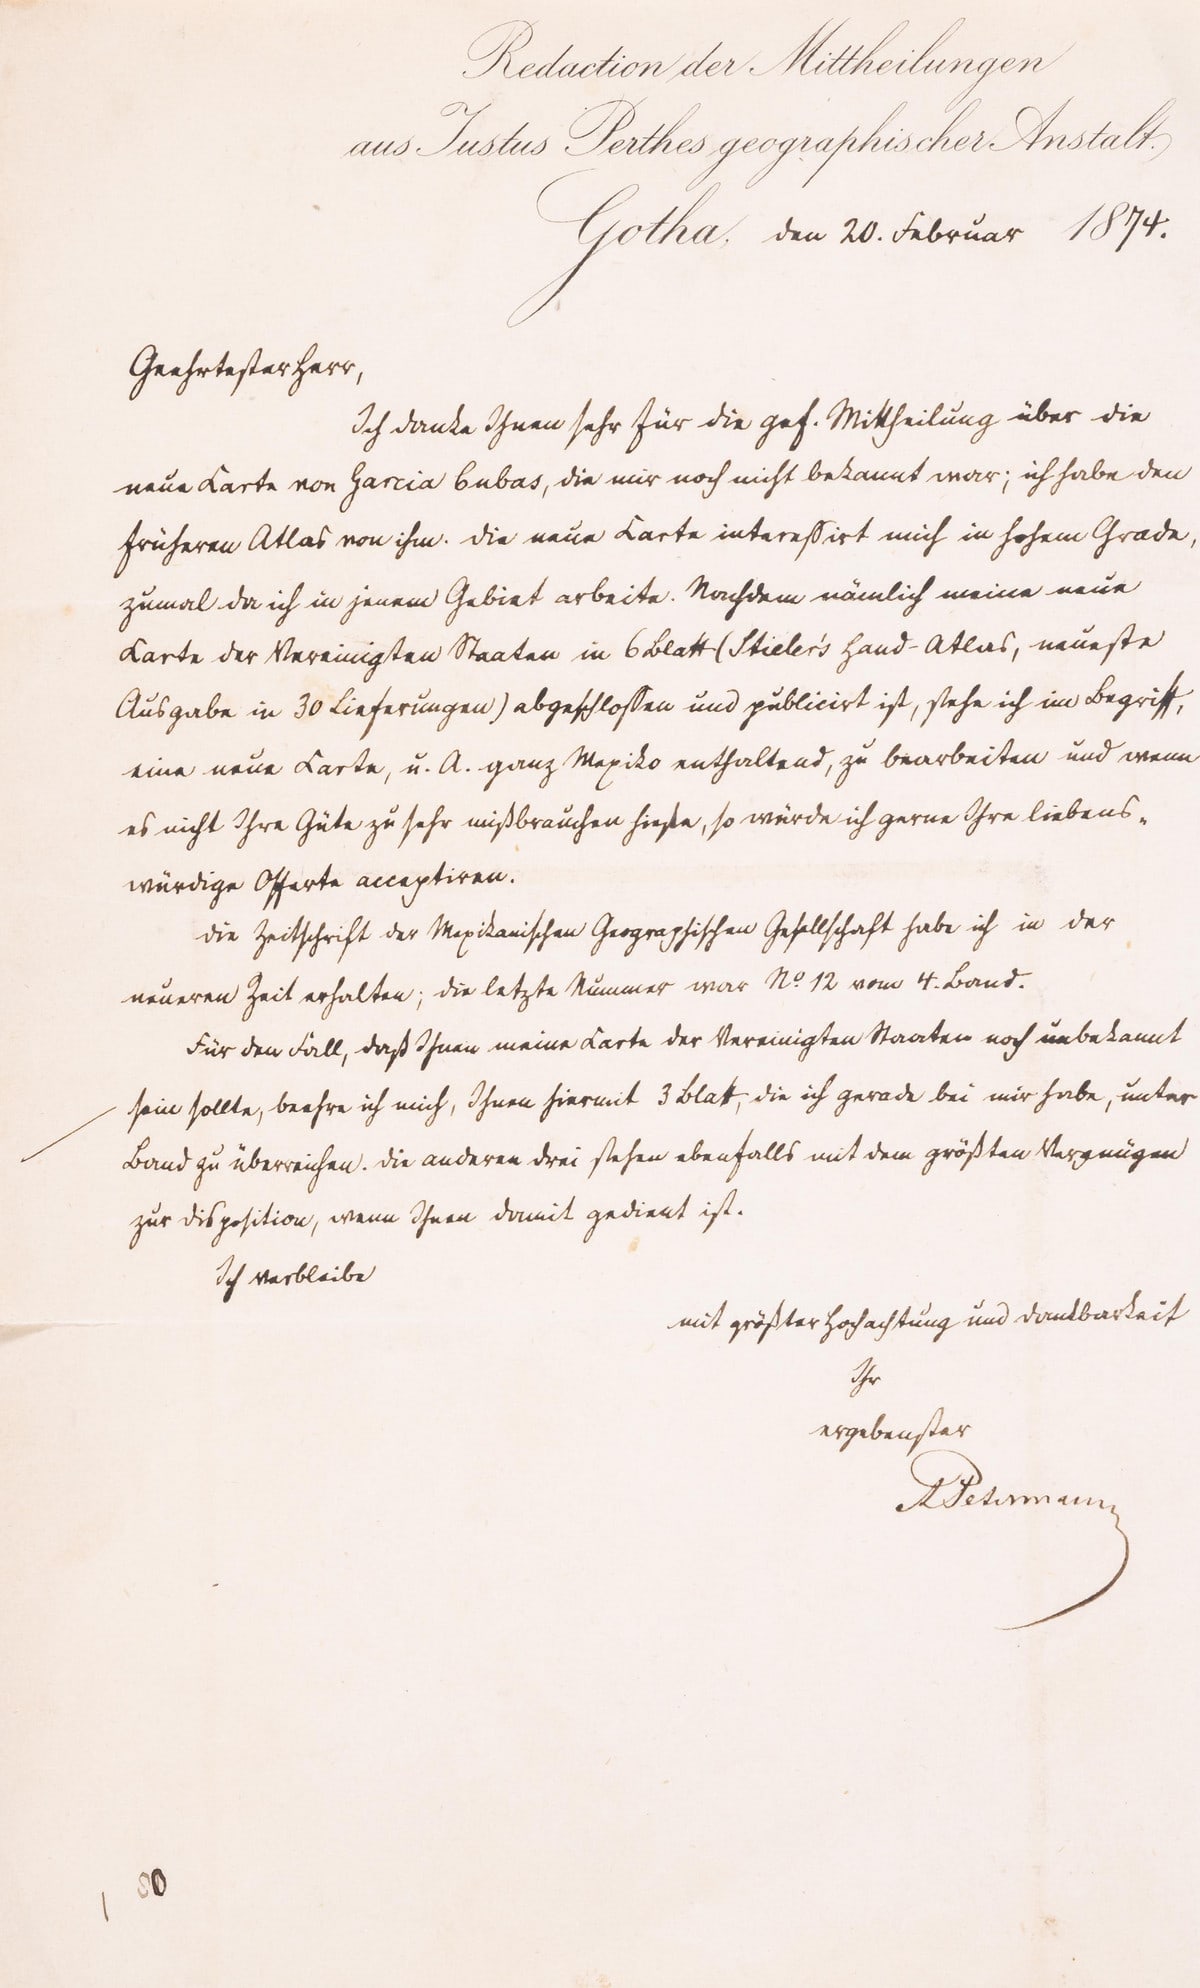 Redaction der Mittheilungen
aus Justus Perthes geographischer Anstalt.
Gotha, den 20. Februar 1874.
Geehrtester Herr,
Ich danke Ihnen sehr für die gef. Mittheilung über die
neue Karte von Garcia Cubas, die mir noch nicht bekannt war; ich habe den
früheren Atlas von ihm. Die neue Karte interessirt mich in hohem Grade,
zumal da ich in jenem Gebiet arbeite. Nachdem nämlich meine neue
Karte der Vereinigten Staaten in 6 Blatt (Stieler's Hand-Atlas, neueste
Ausgabe in 30 Lieferungen) abgeschlossen und publicirt ist, stehe ich im Begriff,
eine neue Karte, u. A. ganz Mexiko enthaltend, zu bearbeiten und wenn
es nicht Ihre Güte zu sehr mißbrauchen hieße, so würde ich gerne Ihre liebens-
würdige Offerte acceptiren.
Die Zeitschrift der Mexikanischen Geographischen Gesellschaft habe ich in der
neueren Zeit erhalten; die letzte Nummer war No. 12 vom 4. Band.
Für den Fall, daß Ihnen meine Karte der Vereinigten Staaten noch unbekannt
sein sollte, beehre ich mich, Ihnen hiermit 3 Blatt, die ich gerade bei mir habe, unter
Band zu überreichen. Die anderen drei stehen ebenfalls mit dem größten Vergnügen
zur Disposition, wenn Ihnen damit gedient ist.
Ich verbleibe
mit größter Hochachtung und Dankbarkeit
Ihr
ergebenster
A Petermann
80